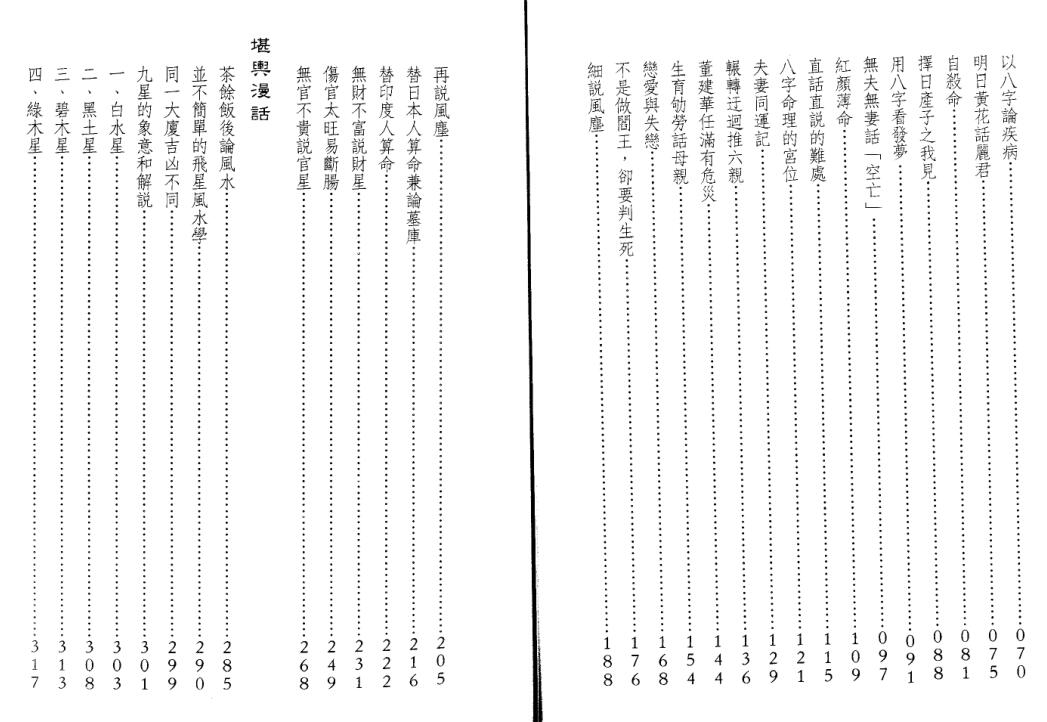 以八字論疾病……070
明日黃花話麗君……075
自殺命……081
擇日產子之我見……088
用八字看發夢……091
無夫無妻話「空亡」……097
紅顏薄命……109
直話直說的難處……115
八字命理的宮位……121
夫妻同運記……129
輾轉迂迴推六親……136
董建華任滿有危災……144
生育劬勞話母親……154
戀愛與失戀……168
不是做閻王，卻要判生死……176
細說風塵……188
再說風塵……205
替日本人算命兼論墓庫……216
替印度人算命……222
無財不富說財星……231
傷官太旺易斷腸……249
無官不貴說官星……268
堪輿漫話
茶餘飯後論風水……285
並不簡單的飛星風水學……290
同一大廈吉凶不同……299
九星的象意和解說……301
一、白水星……303
二、黑土星……308
三、碧木星……313
四、綠木星……317